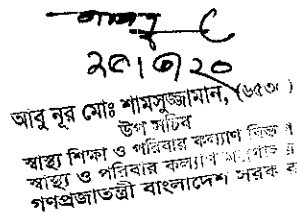 ২৫।৩।২০
আবু নূর মোঃ শামসুজ্জামান, (৬৫৩
উপ সচিব
স্বাস্থ্য শিক্ষা ও পরিবার কল্যাণ বিভাগ
স্বাস্থ্য ও পরিবার কল্যাণ
গণপ্রজাতন্ত্রী বাংলাদেশ সরক